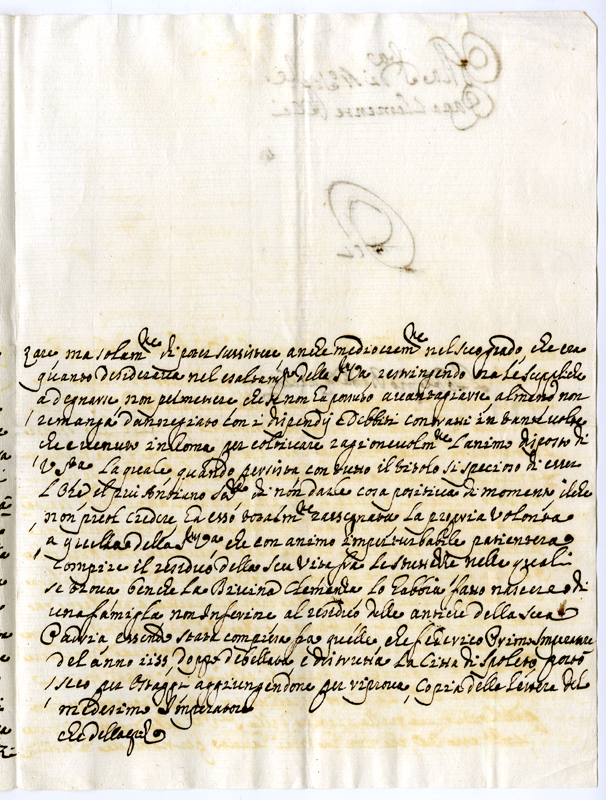 zare ma solam.te di poter sussistere anche mediocrem.te nel suo grado, che era
quanto desiderava nel esaltam.to della S.tà V.ra, restringendo ora le suppliche
a degnarsi non permettere che se non ha potuto avantagiarsi almeno non
rimanga danregiato con i dispendij e Debbiti contratti in tante volte
che è venuto in Roma per coltivare ragionevolm.te l'animo disposto di
V. S.tà la quale quando persista con tutto il titolo si specioso di esser
di non darle cosa positiva di momento ilche
non puol credere ha esso totalm.te rasegnata la propria volontà
a quella della S.tà V.ra che con animo imperturbabile patientera
compire il residuo della sua Vita fra le strettezze nelle quali
si trova benche la Divina Clemenza lo habbia fatto nascere di
una famiglia non Inferiore al residuo delle antiche della sua
Padria essendo stata compresa fra quelle che federico Primo Imperatore
del anno 1155 doppo debellata e distrutta la Citta di Spoleto portò
seco per Ostaggi aggiungendone per vigore, Copia delle lettere del
medesimo Imperatore
che della